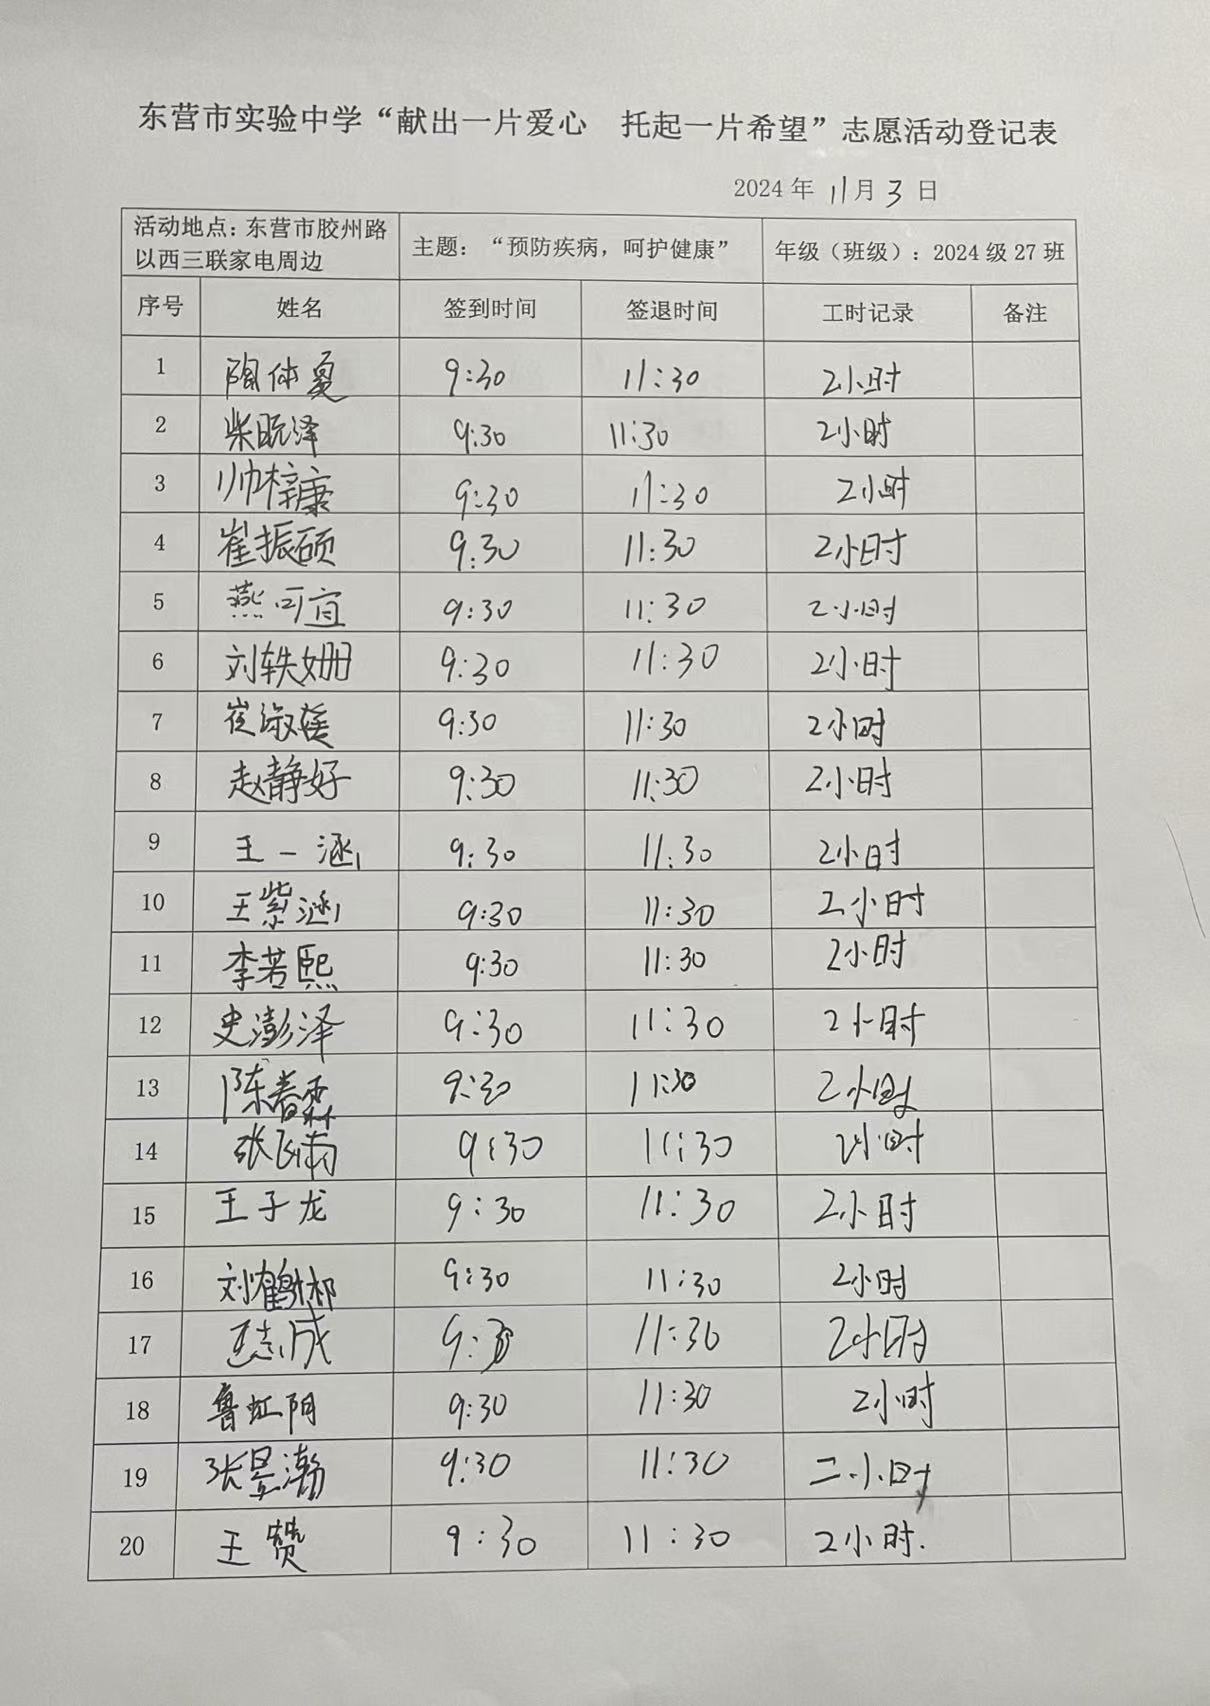 东营市实验中学“献出一片爱心 托起一片希望”志愿活动登记表
2024 年 11月 3 日
活动地点：东营市胶州路以西三联家电周边 主题：“预防疾病，呵护健康” 年级（班级）：2024 级 27 班
序号 姓名 签到时间 签退时间 工时记录 备注
1 陶休夏 9:30 11:30 2小时
2 柴昕泽 9:30 11:30 2小时
3 帅梓康 9:30 11:30 2小时
4 崔振硕 9:30 11:30 2小时
5 燕可宜 9:30 11:30 2小时
6 刘轶姗 9:30 11:30 2小时
7 崔淑媛 9:30 11:30 2小时
8 赵静好 9:30 11:30 2小时
9 王一涵 9:30 11:30 2小时
10 王紫涵 9:30 11:30 2小时
11 李若熙 9:30 11:30 2小时
12 史澎泽 9:30 11:30 2小时
13 陈春霖 9:30 11:30 2小时
14 张飞 9:30 11:30 2小时
15 王子龙 9:30 11:30 2小时
16 刘鹤彬 9:30 11:30 2小时
17 9:30 11:30 2小时
18 鲁虹阳 9:30 11:30 2小时
19 张昱瀚 9:30 11:30 二小时
20 王赞 9:30 11:30 2小时.